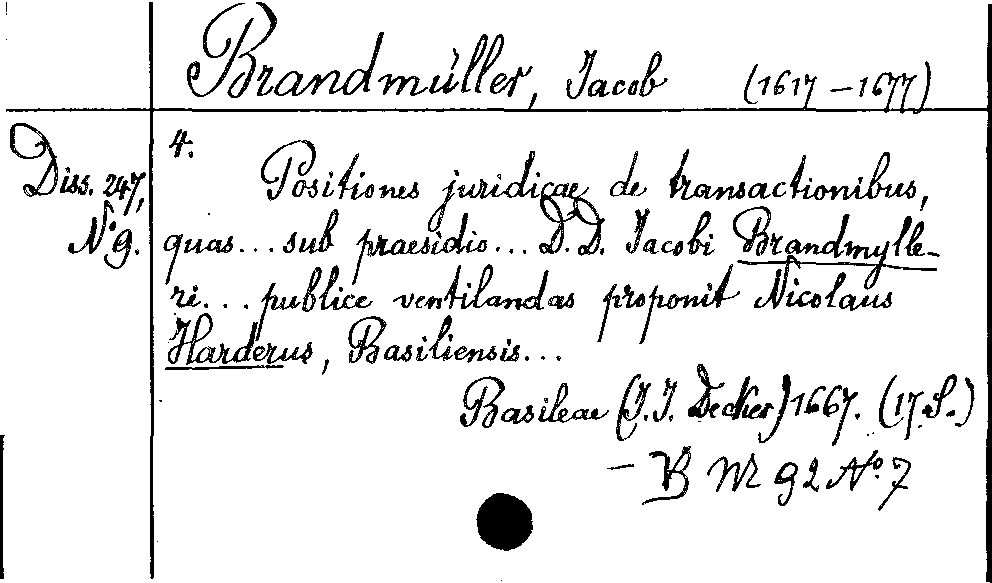 Brandmüller, Jacob (1617 – 1677)
Diss. 247,
No 9.
4.
Positiones juridicae de transactionibus,
quas... sub praesidio... D. D. Jacobi Brandmylle-
ri... publice ventilandas proponit Nicolaus
Harderus, Basiliensis...
Basileae (J. J. Decker) 1667. (17 S.)
– B VII 92 No. 7